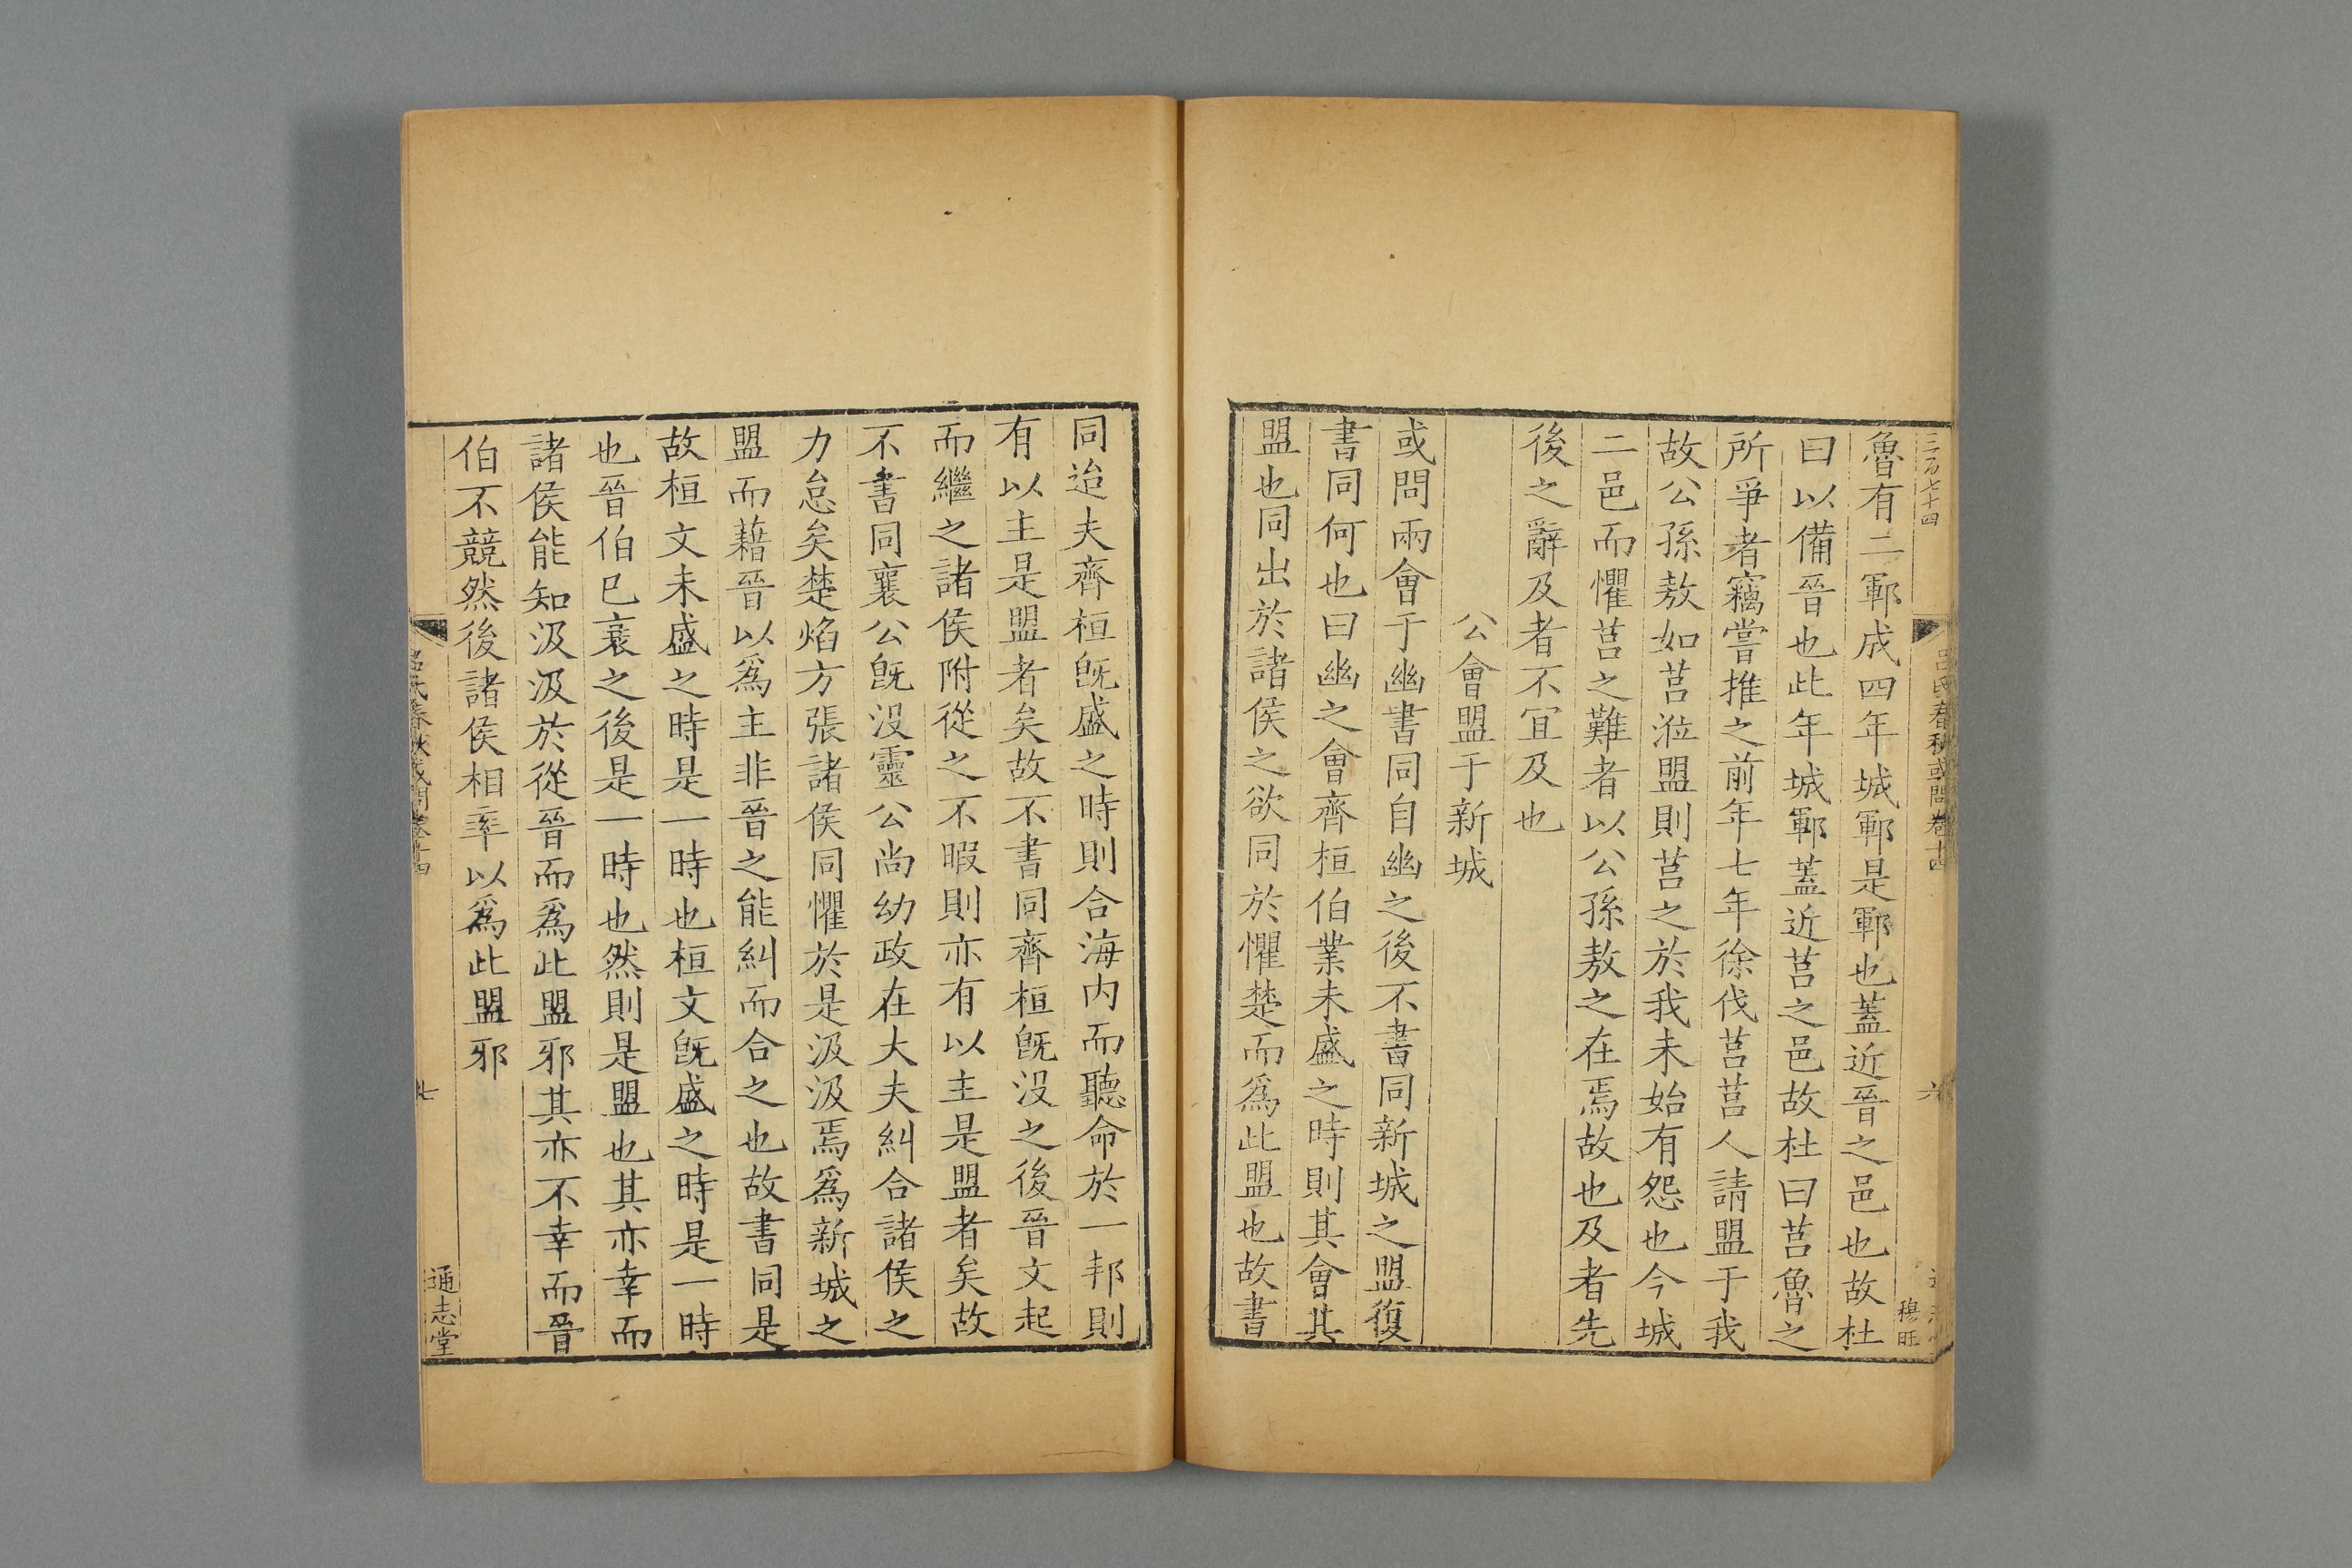 魯有二鄆成四年城鄆是鄆也蓋近晉之邑也故杜
曰以備晉也此年城鄆蓋近莒之邑故杜曰莒魯之
所爭者竊嘗推之前年七年徐伐莒莒人請盟于我
故公孫敖如莒涖盟則莒之於我未始有怨也今城
二邑而懼莒之難者以公孫敖之在焉故也及者先
後之辭及者不冝及也
公會盟于新城
或問兩會于幽書同自幽之後不書同新城之盟復
書同何也曰幽之會齊桓伯業未盛之時則其會其
盟也同出於諸侯之欲同於懼楚而爲此盟也故書
同迨夫齊桓旣盛之時則合海内而聽命於一邦則
有以主是盟者矣故不書同齊桓旣沒之後晉文起
而繼之諸侯附從之不暇則亦有以主是盟者矣故
不書同襄公旣沒靈公尚幼政在大夫糾合諸侯之
力怠矣楚焰方張諸侯同懼於是汲汲焉爲新城之
盟而藉晉以爲主非晉之能糾而合之也故書同是
故桓文未盛之時是一時也桓文旣盛之時是一時
也晉伯已衰之後是一時也然則是盟也其亦幸而
諸侯能知汲汲於從晉而爲此盟邪其亦不幸而晉
伯不競然後諸侯相率以爲此盟邪
呂氏春秋或問卷十四
六
穆旺
七
通志堂